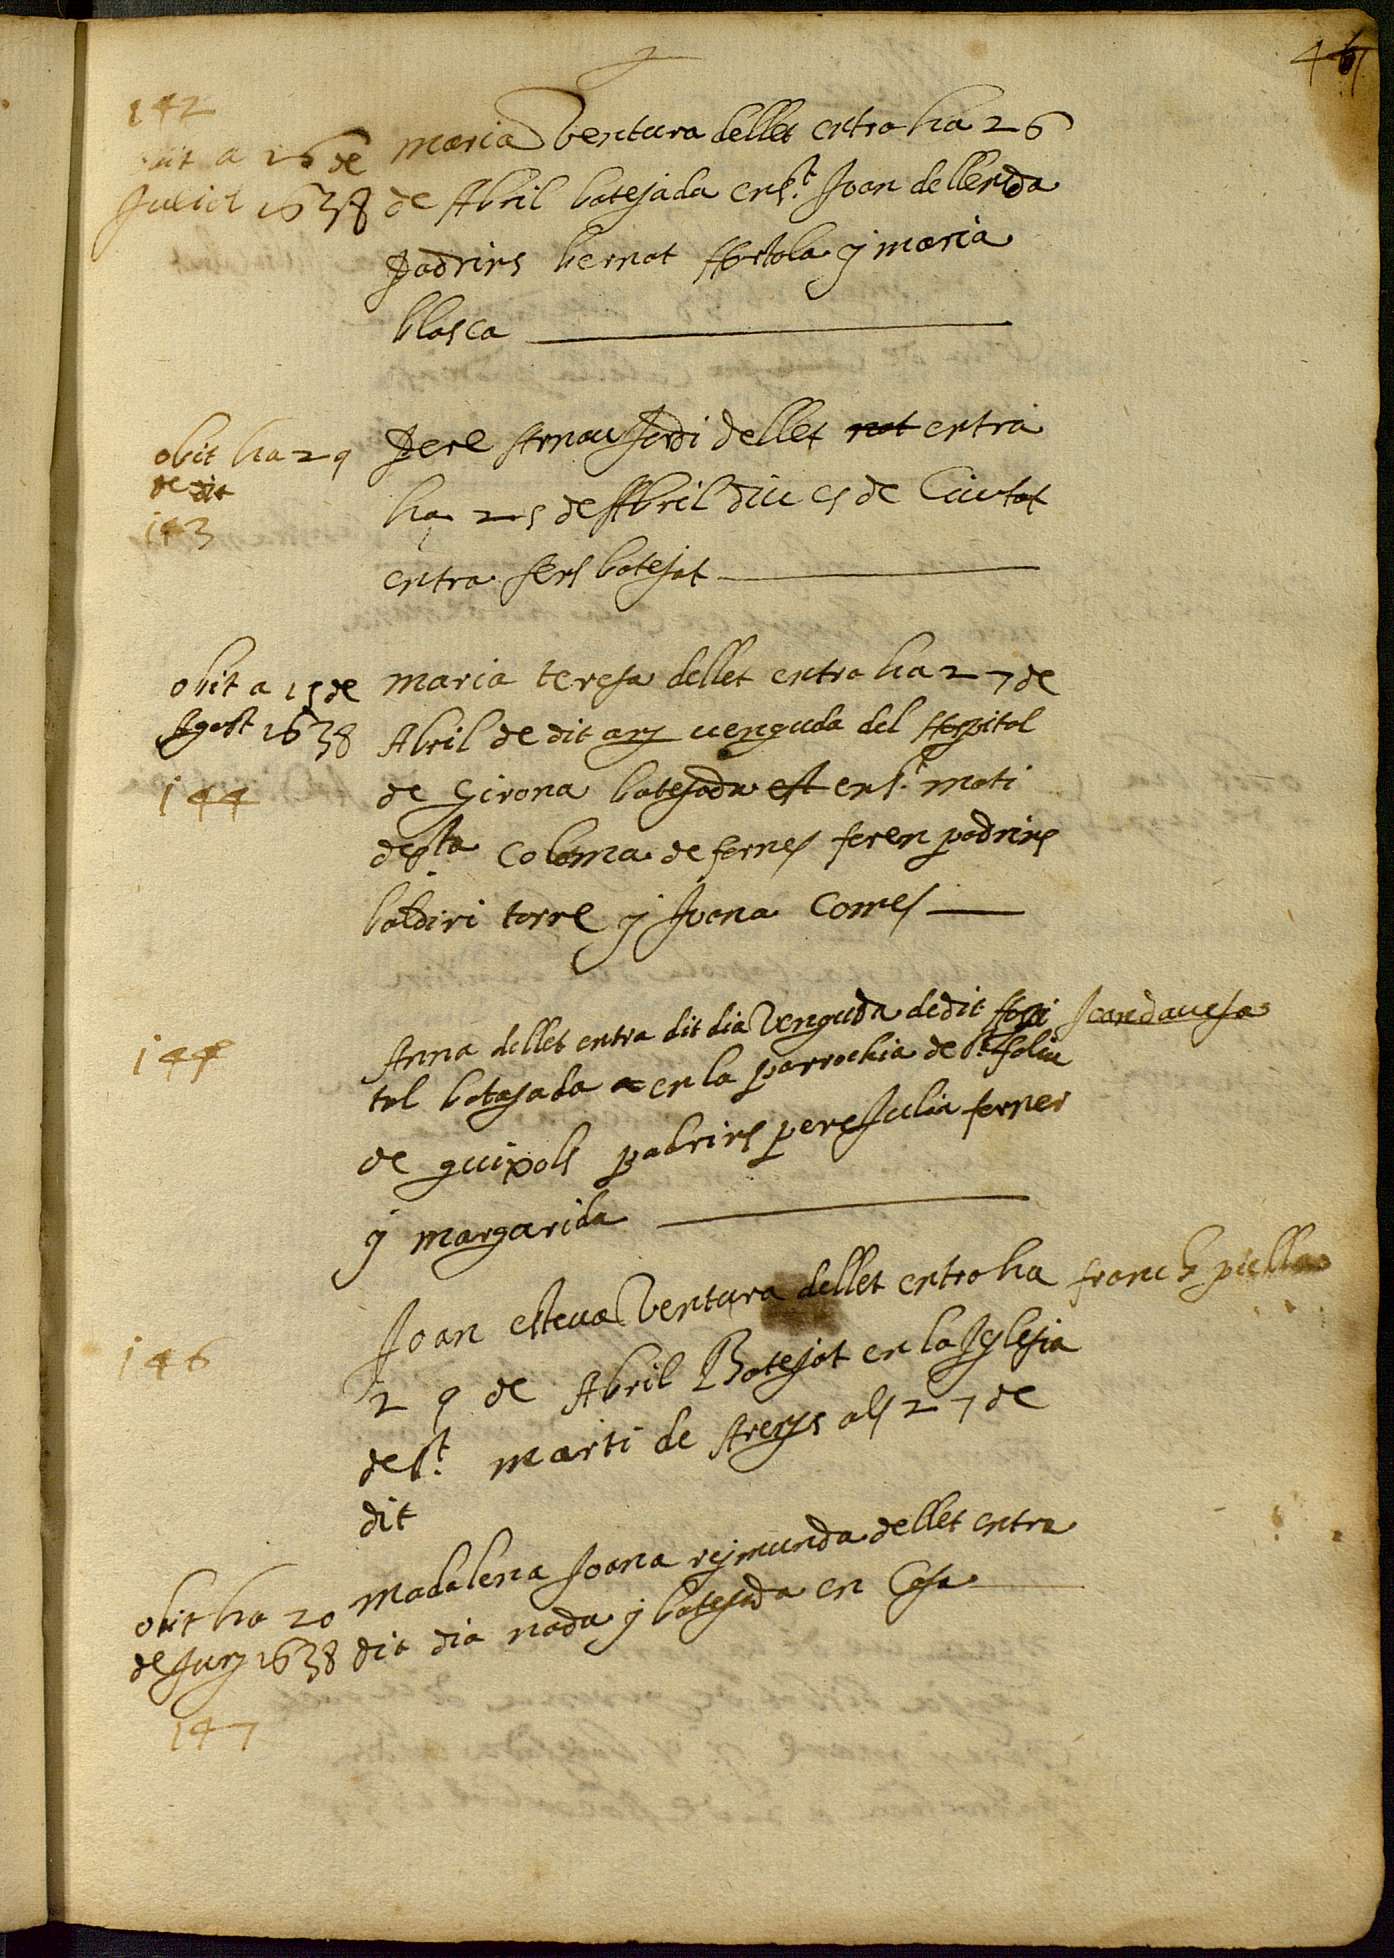 142
obit a 26 de
Juliol 1638
maria Ventura dellet entra ha 26
de Abril batejada en St. Joan de llerida
Padrins bernat y maria
blasca
obit ha 29
de dit
143
Pere Arnau Jordi dellet not entra
ha 25 de Abril diu es de Ciutat
entra sens batejat
obit a 15 de
Agost 1638
144
maria teresa dellet entra ha 27 de
Abril de dit any venguda del Hospital
de Girona batejada est en St. mati
de Sta Coloma de fornes foren padrins
baldiri torre y Juana Comes
145
Anna dellet entra dit dia Venguda de dit Hospi
tal batejada a en la parrochia de St. foliu
de guixols padrins pere Julia forner
y margarida
146
Joan esteva Ventura dellet entra ha franch
29 de Abril Batejat en la Iglesia
de St. marti de Arenys als 27 de
dit
obit ha 20
de Juny 1638
147
Madalena Joana rymunda dellet entra
dit dia nada y batejada en Casa